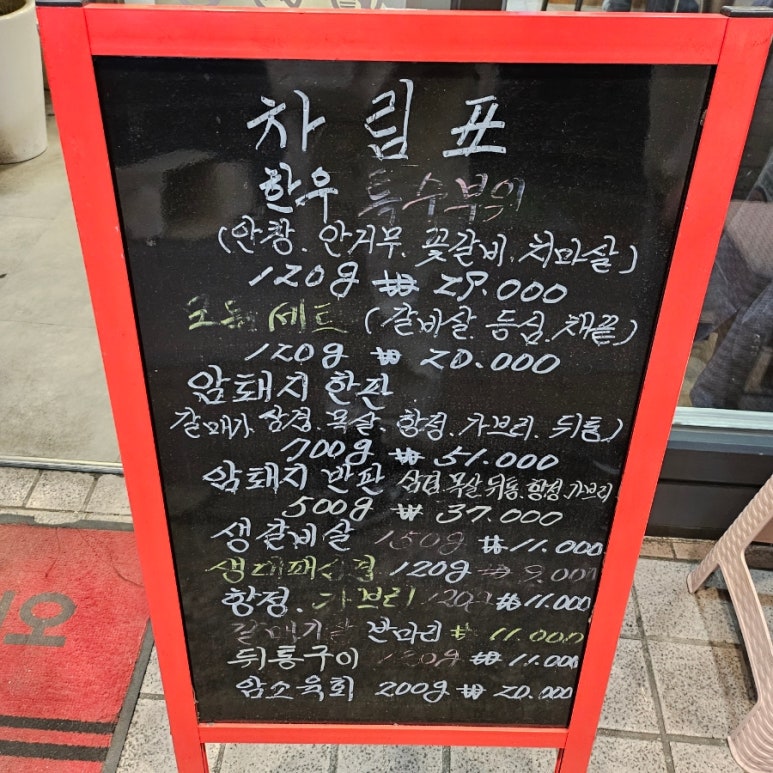 차림표
한우 특수부위
(안창. 안거무. 꽃갈비. 치마살)
120g ₩ 29.000
모듬세트 (갈비살. 등심. 채끝)
120g ₩ 20.000
암돼지 한판
갈매기 삼겹. 목살. 항정. 가브리. 뒤통)
700g ₩ 51.000
암돼지 반판 삼겹.목살.뒤통.항정.가브리
500g ₩ 37.000
생갈비살 150g ₩11.000
생대패삼겹 120g ₩ 9.000
항정. 가브리 120g ₩11.000
갈매기살 반마리 ₩ 11.000
뒤통구이 150g ₩11.000
암소육회 200g ₩ 20.000